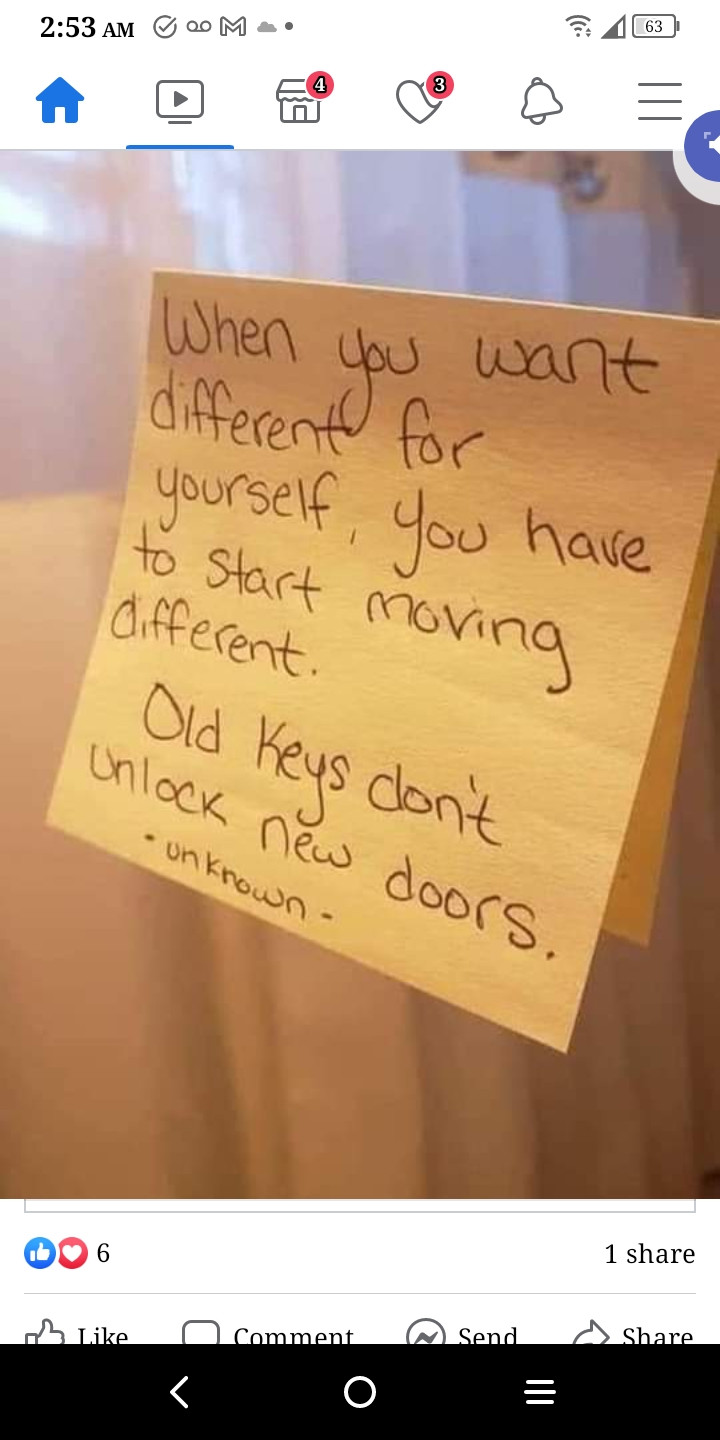 2:53 AM 63
4 3
When you want
different for
yourself, you have
to start moving
different.
Old keys don't
unlock new doors.
- unknown -
6 1 share
Like Comment Send Share